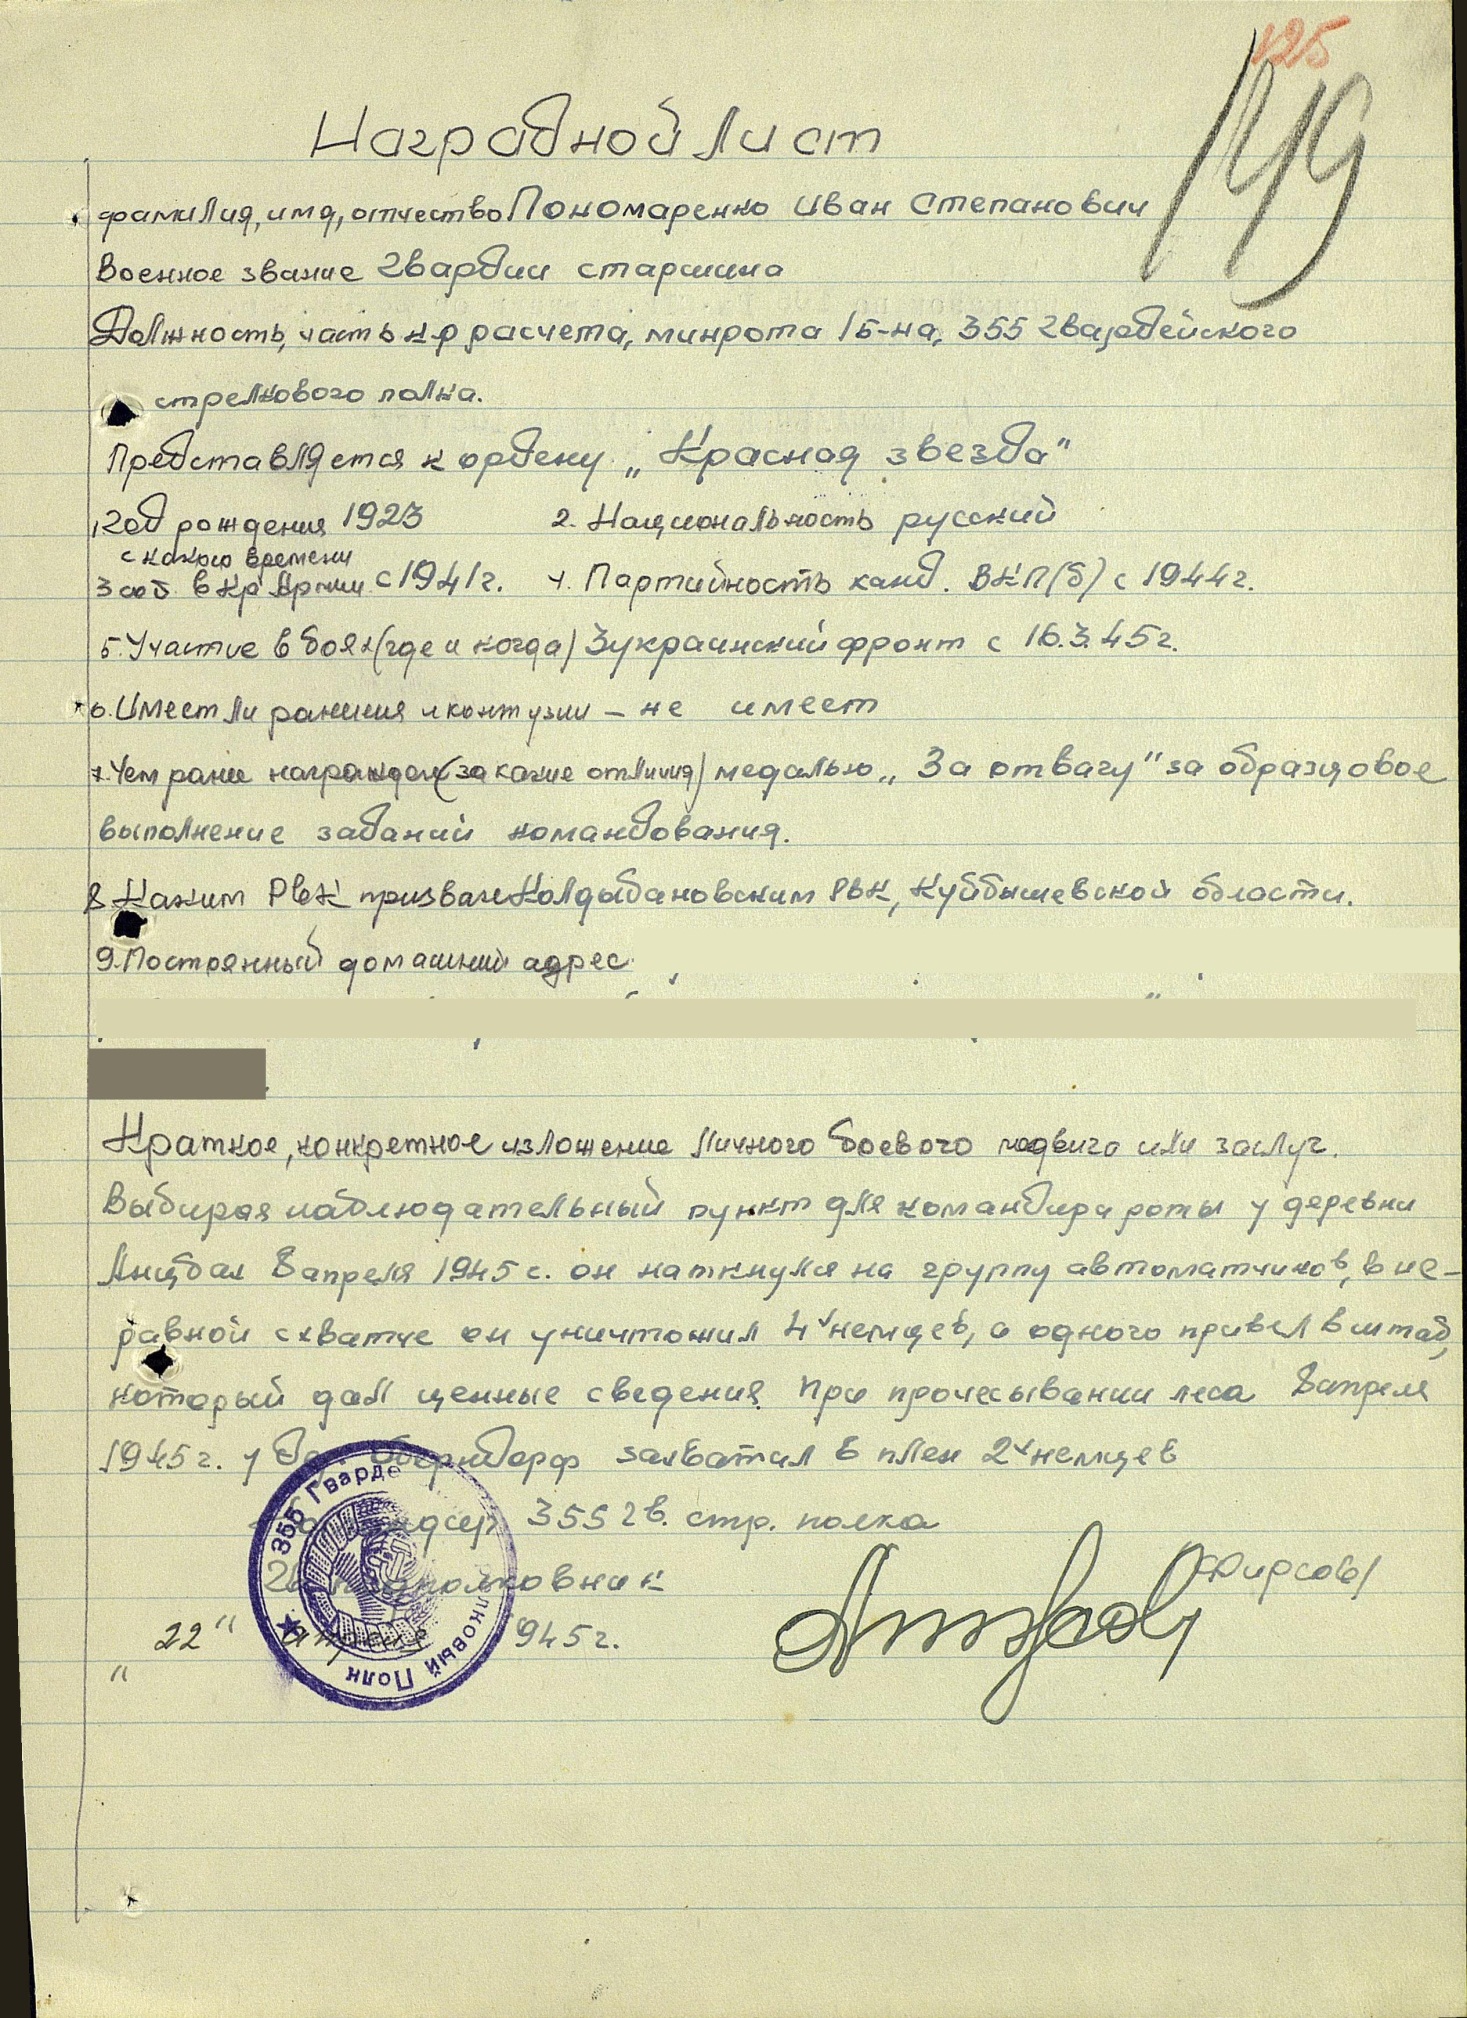 125
149
Наградной лист
фамилия, имя, отчество Пономаренко Иван Степанович
Военное звание Гвардии старшина
Должность, часть к-р расчета, минрота 1 Б-на, 355 Гвардейского
стрелкового полка.
Представляется к ордену „Красная звезда"
1. Год рождения 1923 2. Национальность русский
с какого времени
3 сост в Кр Армии с 1941г. 4. Партийность канд. ВКП(б) с 1944г.
5. Участие в боях (где и когда) 3 украинский фронт с 16.3.45г.
6. Имеет ли ранения и контузии – не имеет
7. Чем ранее награжден (за какие отличия) медалью „За отвагу" за образцовое
выполнение заданий командования.
8 Каким РВК призван Колдыбановским РВК, Куйбышевской области.
9. Постоянный домашний адрес
Краткое, конкретное изложение личного боевого подвига или заслуг.
Выбирая наблюдательный пункт для командира роты у деревни
8 апреля 1945 г. он наткнулся на группу автоматчиков, в не-
равной схватке он уничтожил 4х немцев, а одного привел в штаб,
который дал ценные сведения. При прочесывании леса 8 апреля
1945г. у Оберндорф захватил в плен 2х немцев
355 гв. стр. полка
Гв подполковник
/Фирсов/
„22" апреля 1945г.
355 Гварде
лковый Полк